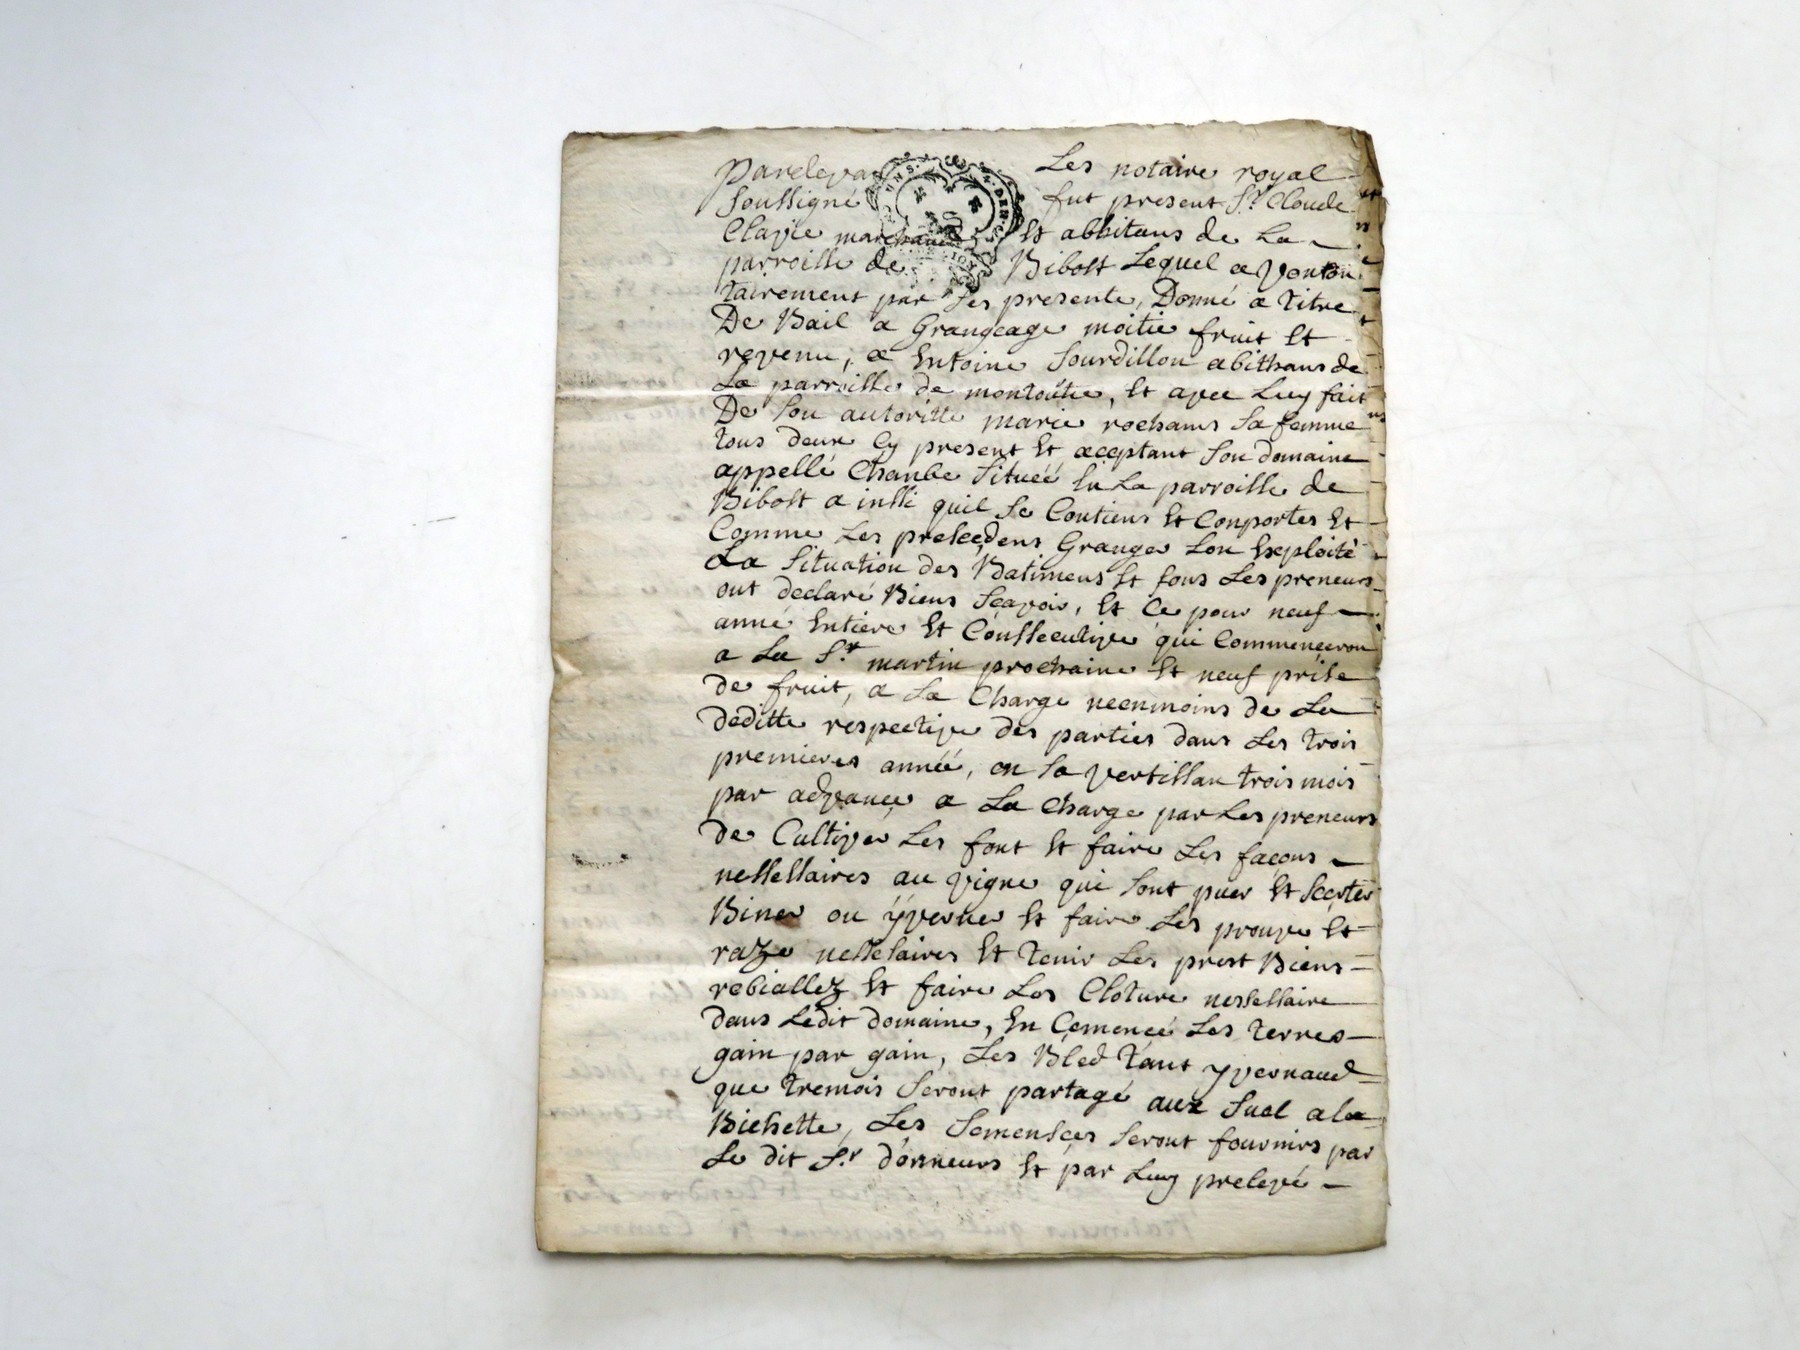 Pardeva Les notaire royal
soussigné fut present Sr. Claude
Clapie marchand et abbitans de La
parroisse de Bibost Lequel a vonton
tairement par Ses presente, Donné a titre
De Bail a Grangeage moitie fruit Et
revenu, a Entoine Sourdillon abithans de
La parroisse de montoutre, Et avec Luy fait
De Son autoritté marie rochams Sa femme
tous deux Cy present Et aceptant Son domaine
appellé Chambe Situéé En La parroisse de
Bibost a insi quil Se Contiens Et Conportes Et
Comme Les presedens Granges Lon Exploité
La Situation des Batimens Et fons Les preneurs
ont declaré Biens Sçavoir, Et Ce pour neuf
anné Entiere Et Conssecutive qui Commenceron
a La St. martin prochaine Et neuf prise
de fruit, a La Charge neenmoins de La
deditte respective des parties dans Les trois
premieres annéé, en Sa vertissan trois mois
par advance a La Charge par Les preneurs
de Cultiver Les font Et faire Les façons
nessessaires au vigne qui Sont puer Et
Biner ou yverner Et faire Les prouve Et
raze nessesaires Et tenir Les prest Biens
rebiallez Et faire Les Cloture nessessaire
dans Ledit domaine, En Cemencé Les terres
gain par gain, Les Bled tant yvernaud
que tremois Seront partagé aux Suel a la
Bichette, Les Semensçes Seront fournirs par
Le dit Sr. donneurs Et par Luy prelevé